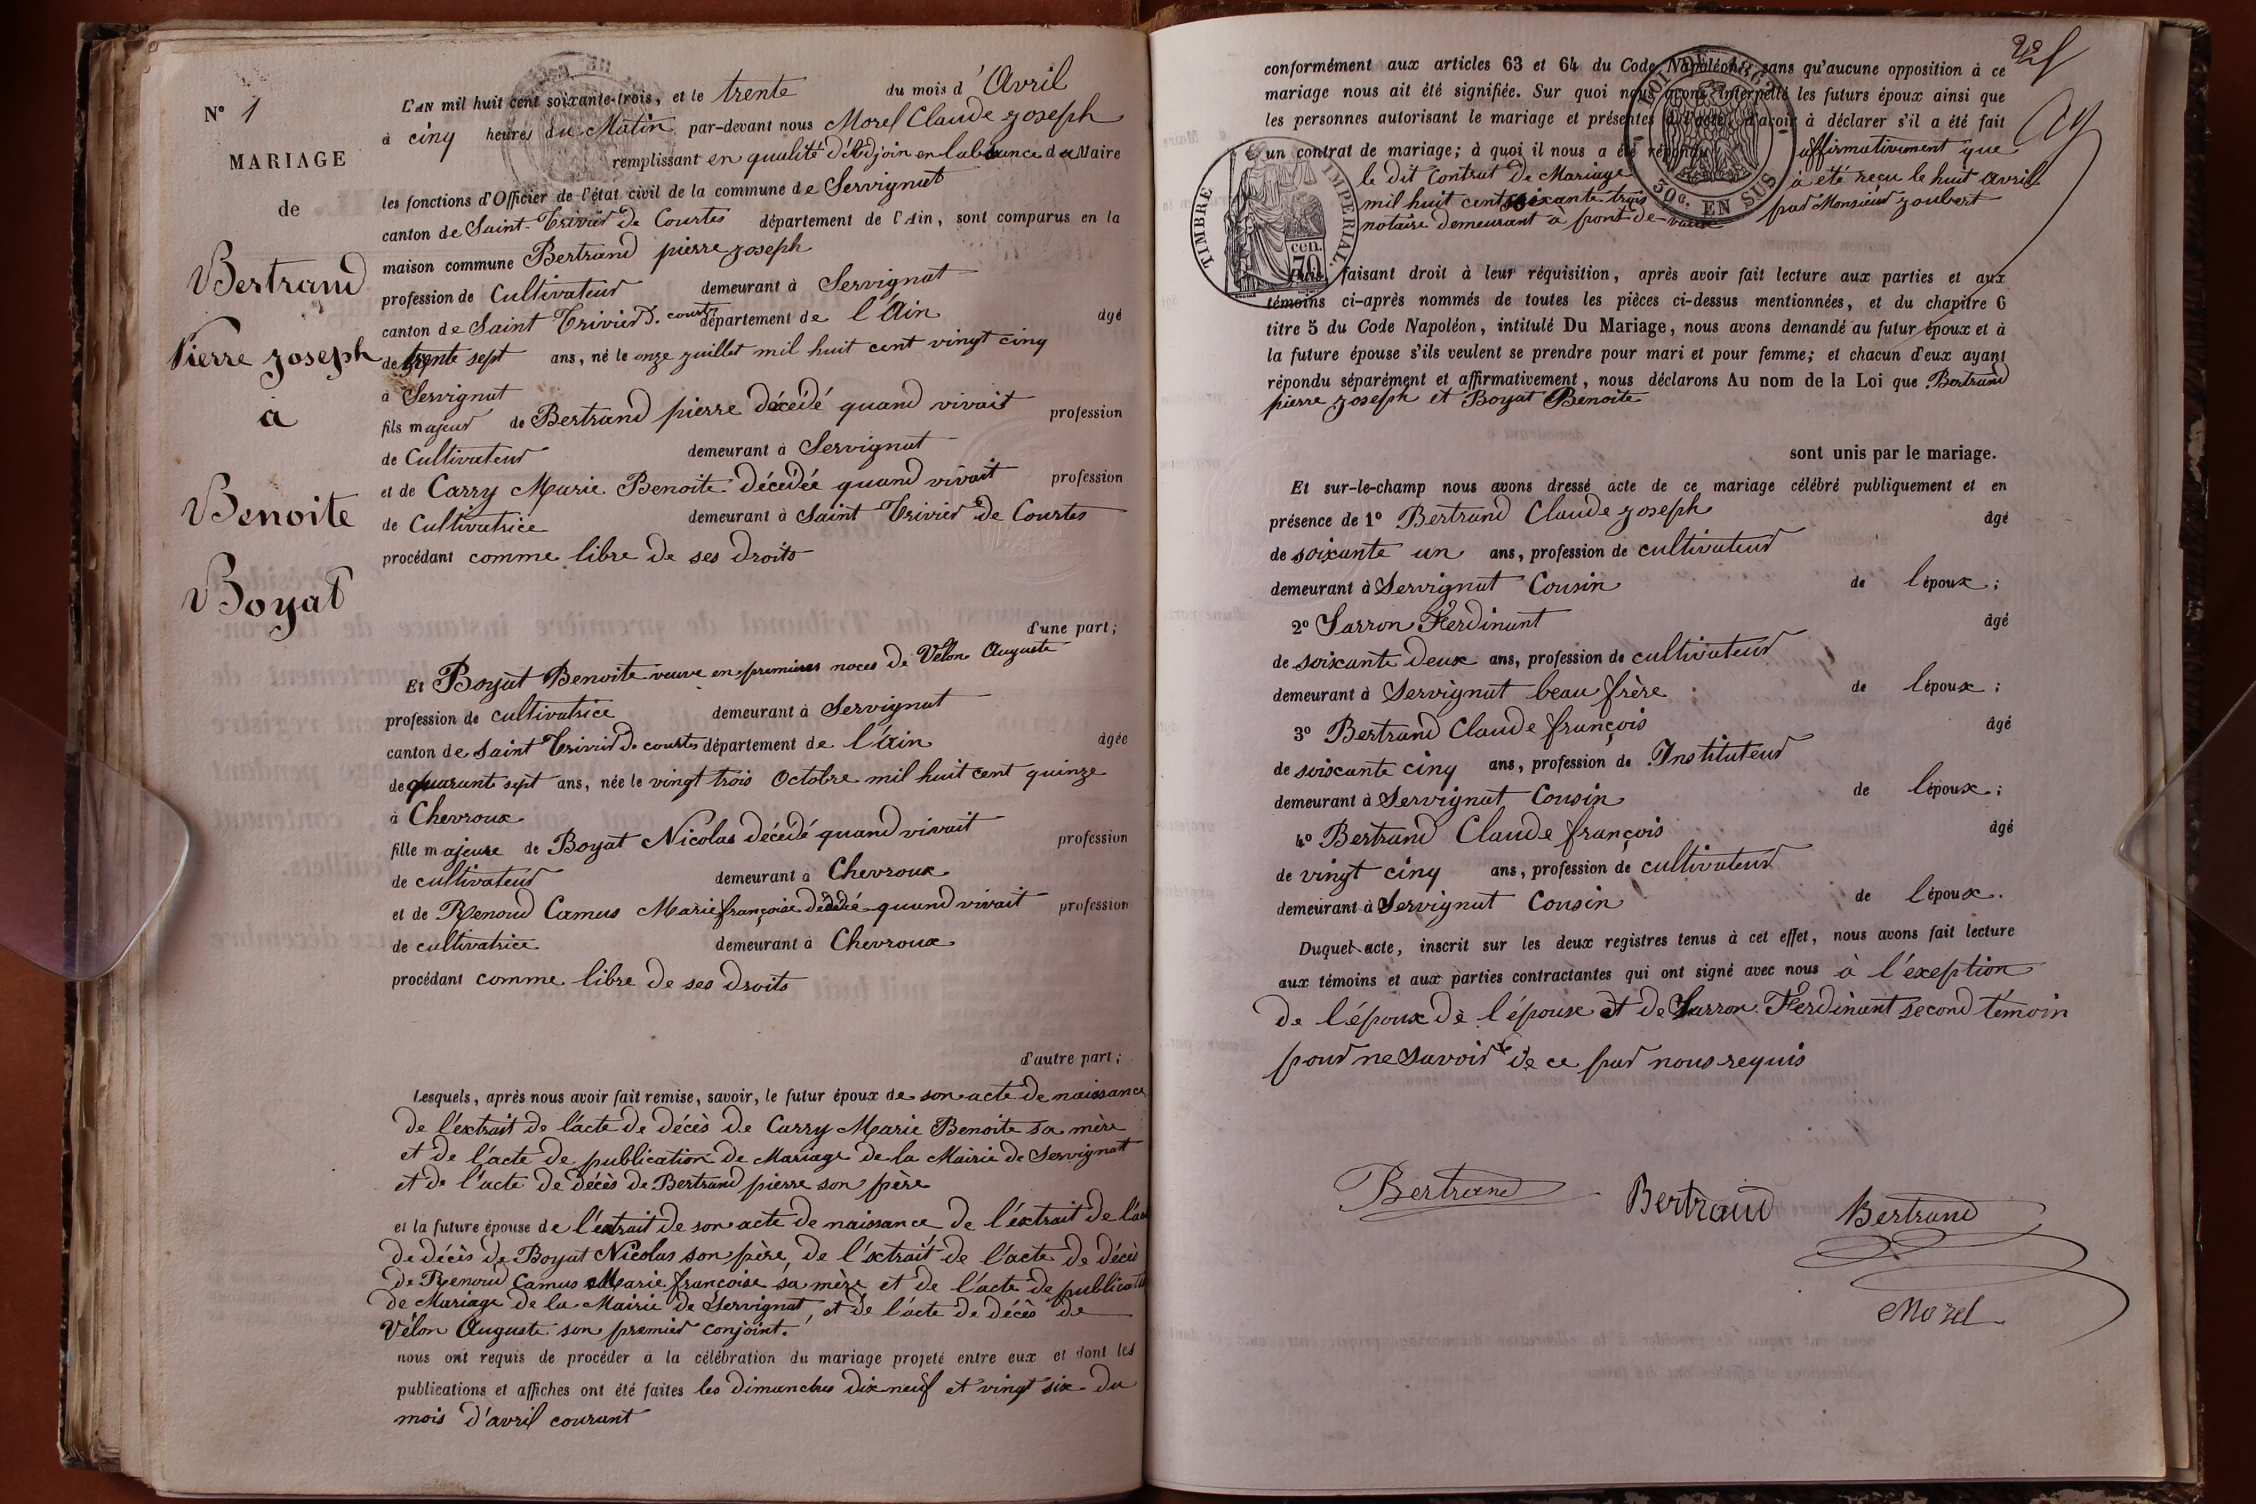 N° 1
MARIAGE
de
Bertrand
Pierre Joseph
à
Benoite
Boyat
L'AN mil huit cent soixante-trois, et le trente du mois d'Avril
à cinq heures du Matin par-devant nous Morel Claude Joseph
remplissant en qualité d'Adjoin en l'absence du Maire
les fonctions d'Officier de l'état civil de la commune de Servignat
canton de Saint-Trivier de Courtes département de l'Ain, sont comparus en la
maison commune Bertrand pierre Joseph
profession de Cultivateur demeurant à Servignat
canton de Saint Trivier d. courtes département de l'Ain âgé
de trente sept ans, né le onze Juillet mil huit cent vingt cinq
à Servignat
fils majeur de Bertrand pierre décédé quand vivait profession
de Cultivateur demeurant à Servignat
et de Carry Marie Benoite décédée quand vivait profession
de Cultivatrice demeurant à Saint Trivier de Courtes
procédant comme libre de ses droits
d'une part;
Et Boyat Benoite veuve en premières noces de Vélon Auguste
profession de cultivatrice demeurant à Servignat
canton de Saint Trivier de courtes département de l'ain âgée
de quarante sept ans, née le vingt trois Octobre mil huit cent quinze
à Chevroux
fille majeure de Boyat Nicolas décédé quand vivait profession
de cultivateur demeurant à Chevroux
et de Renoud Camus Marie françoise quand vivait profession
de cultivatrice demeurant à Chevroux
procédant comme libre de ses droits
d'autre part;
Lesquels, après nous avoir fait remise, savoir, le futur époux de son acte de naissance
de l'extrait de l'acte de décès de Carry Marie Benoite sa mère
et de l'acte de publication de Mariage de la Mairie de Servignat
et de l'acte de décès de Bertrand pierre son père
et la future épouse de l'extrait de son acte de naissance de l'extrait de l'acte
de décès de Boyat Nicolas son père, de l'extrait de l'acte de décès
de Renoud Camus Marie françoise sa mère et de l'acte de publication
de Mariage de la Mairie de Servignat, et de l'acte de décès de
Vélon Auguste son premier conjoint.
nous ont requis de procéder à la célébration du mariage projeté entre eux et dont les
publications et affiches ont été faites les dimanches dix neuf et vingt six du
mois d'avril courant
conformément aux articles 63 et 64 du Code Napoléon, sans qu'aucune opposition à ce
mariage nous ait été signifiée. Sur quoi nous avons interpellé les futurs époux ainsi que
les personnes autorisant le mariage et présentes à l'acte, d'avoir à déclarer s'il a été fait
un contrat de mariage; à quoi il nous a été répondu affirmativement que
le dit Contrat de Mariage à été reçu le huit avril
mil huit cent soixante trois par Monsieur Joubert
notaire demeurant à pont-de-vaux
TIMBRE IMPERIAL
cen. 70
50 C. EN SUS
Puis, faisant droit à leur réquisition, après avoir fait lecture aux parties et aux
témoins ci-après nommés de toutes les pièces ci-dessus mentionnées, et du chapitre 6
titre 5 du Code Napoléon, intitulé Du Mariage, nous avons demandé au futur époux et à
la future épouse s'ils veulent se prendre pour mari et pour femme; et chacun d'eux ayant
répondu séparément et affirmativement, nous déclarons Au nom de la Loi que Bertrand
pierre Joseph et Boyat Benoite
sont unis par le mariage.
Et sur-le-champ nous avons dressé acte de ce mariage célébré publiquement et en
présence de 1° Bertrand Claude Joseph âgé
de soixante un ans, profession de cultivateur
demeurant à Servignat Cousin de l'époux;
2° Sarron Ferdinant âgé
de soixante deux ans, profession de cultivateur
demeurant à Servignat beau frère de l'époux;
3° Bertrand Claude françois âgé
de soixante cinq ans, profession de Instituteur
demeurant à Servignat Cousin de l'époux;
4° Bertrand Claude françois âgé
de vingt cinq ans, profession de cultivateur
demeurant à Servignat Cousin de l'époux.
Duquel acte, inscrit sur les deux registres tenus à cet effet, nous avons fait lecture
aux témoins et aux parties contractantes qui ont signé avec nous à l'exeption
de l'époux de l'épouse et de Sarron Ferdinant second témoin
pour ne savoir de ce par nous requis
Bertrand Bertrand Bertrand
Morel